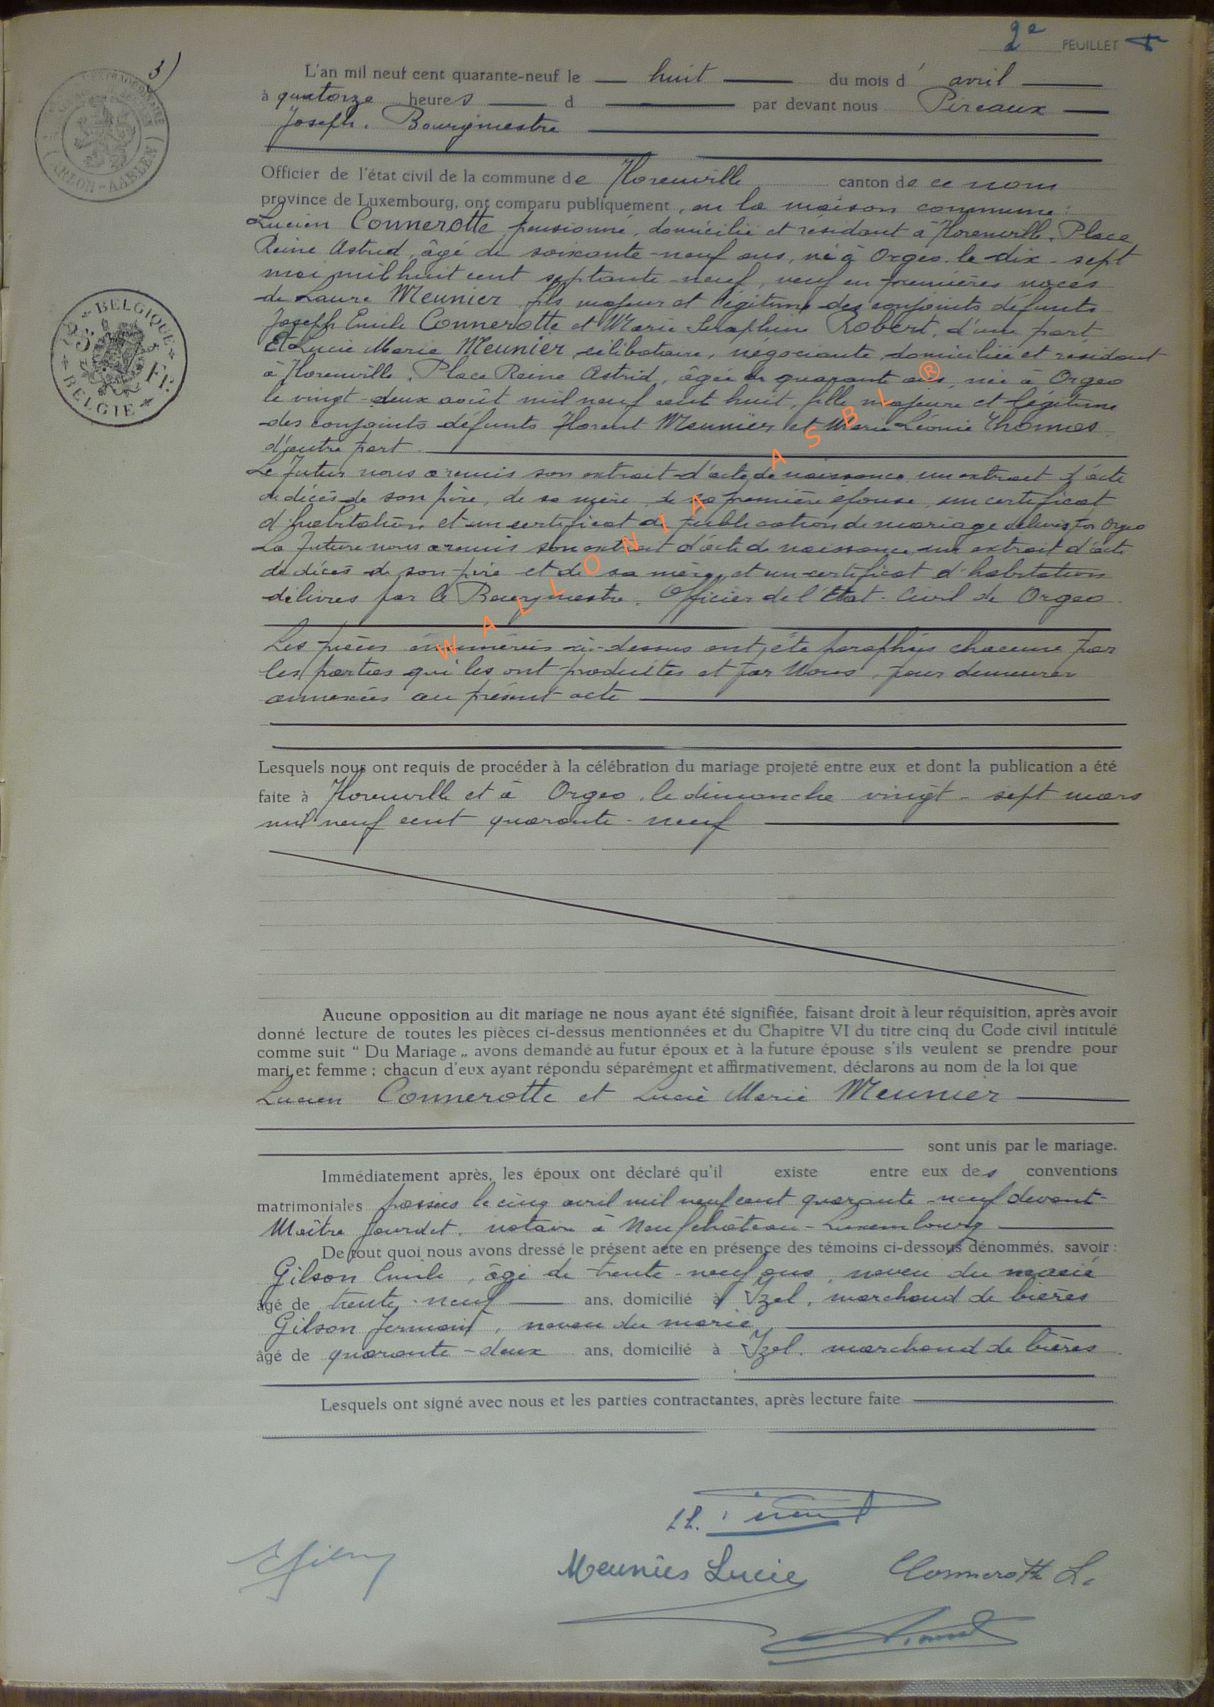 2e FEUILLET
3)
L'an mil neuf cent quarante-neuf le huit du mois d' avril
à quatorze heures d par devant nous Pireaux
Joseph. Bourgmestre
Officier de l'état civil de la commune de Florenville canton de ce nom
province de Luxembourg, ont comparu publiquement, en la maison commune:
Lucien Connerotte, pensionné, domicilié et résidant à Florenville, Place
Reine Astrid, âgé de soixante-neuf ans, né à Orgeo le dix-sept
mai mil huit cent septante-neuf, veuf en premières noces
de Laure Meunier, fils majeur et légitime des conjoints défunts
Joseph Emile Connerotte et Marie Séraphine Robert, d'une part
Et Lucie Marie Meunier, célibataire, négociante, domiciliée et résidant
à Florenville, Place Reine Astrid, âgée de quarante ans, née à Orgeo
le vingt-deux août mil neuf cent huit, fille majeure et légitime
des conjoints défunts Florent Meunier et Marie Léonie Thomas
d'autre part.
Le futur nous a remis son extrait d'acte de naissance, un extrait d'acte
de décès de son père, de sa mère, de sa première épouse, un certificat
d'habitation et un certificat de publication de mariage délivrés par Orgeo
La future nous a remis son extrait d'acte de naissance, un extrait d'acte
de décès de son père et de sa mère, et un certificat d'habitation
délivrés par le Bourgmestre, Officier de l'Etat-Civil de Orgeo.
Les pièces énumérées ci-dessus ont été paraphées chacune par
les parties qui les ont produites et par Nous, pour demeurer
annexées au présent acte
Lesquels nous ont requis de procéder à la célébration du mariage projeté entre eux et dont la publication a été
faite à Florenville et à Orgeo, le dimanche vingt-sept mars
mil neuf cent quarante-neuf
Aucune opposition au dit mariage ne nous ayant été signifiée, faisant droit à leur réquisition, après avoir
donné lecture de toutes les pièces ci-dessus mentionnées et du Chapitre VI du titre cinq du Code civil intitulé
comme suit “ Du Mariage „ avons demandé au futur époux et à la future épouse s'ils veulent se prendre pour
mari et femme ; chacun d'eux ayant répondu séparément et affirmativement, déclarons au nom de la loi que
Lucien Connerotte et Lucie Marie Meunier
sont unis par le mariage.
Immédiatement après, les époux ont déclaré qu'il existe entre eux des conventions
matrimoniales passées le cinq avril mil neuf cent quarante-neuf devant
Maître Jourdet, notaire à Neufchâteau-Luxembourg
De tout quoi nous avons dressé le présent acte en présence des témoins ci-dessous dénommés, savoir :
Gilson Emile, âgé de trente-neuf ans, neveu du marié
âgé de trente-neuf ans, domicilié à Izel, marchand de bières
Gilson Fermont, neveu du marié,
âgé de quarante-deux ans, domicilié à Izel, marchand de bières.
Lesquels ont signé avec nous et les parties contractantes, après lecture faite
Meunier Lucie Connerotte L.
BELGIQUE
BELGIE
Fr
ARLON-AARLEN
WALLONIA ASBL ®